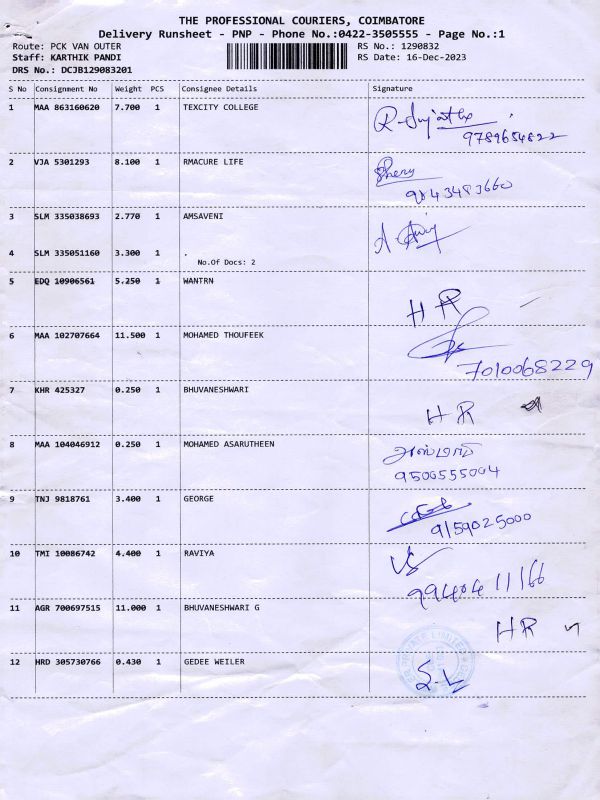 THE PROFESSIONAL COURIERS, COIMBATORE
Delivery Runsheet - PNP - Phone No.:0422-3505555 - Page No.:1
Route: PCK VAN OUTER RS No.: 1290832
Staff: KARTHIK PANDI RS Date: 16-Dec-2023
DRS No.: DCJB129083201
S No Consignment No Weight PCS Consignee Details Signature
1 MAA 863160620 7.700 1 TEXCITY COLLEGE
9789654822
2 VJA 5301293 8.100 1 RMACURE LIFE
9843483660
3 SLM 335038693 2.770 1 AMSAVENI
4 SLM 335051160 3.300 1 .
No.Of Docs: 2
5 EDQ 10906561 5.250 1 WANTRN
HR
6 MAA 102707664 11.500 1 MOHAMED THOUFEEK
7010068229
7 KHR 425327 0.250 1 BHUVANESHWARI
HR
8 MAA 104046912 0.250 1 MOHAMED ASARUTHEEN
9500555004
9 TNJ 9818761 3.400 1 GEORGE
9159025000
10 TMI 10086742 4.400 1 RAVIYA
9940411166
11 AGR 700697515 11.000 1 BHUVANESHWARI G
HR
12 HRD 305730766 0.430 1 GEDEE WEILER
S.L